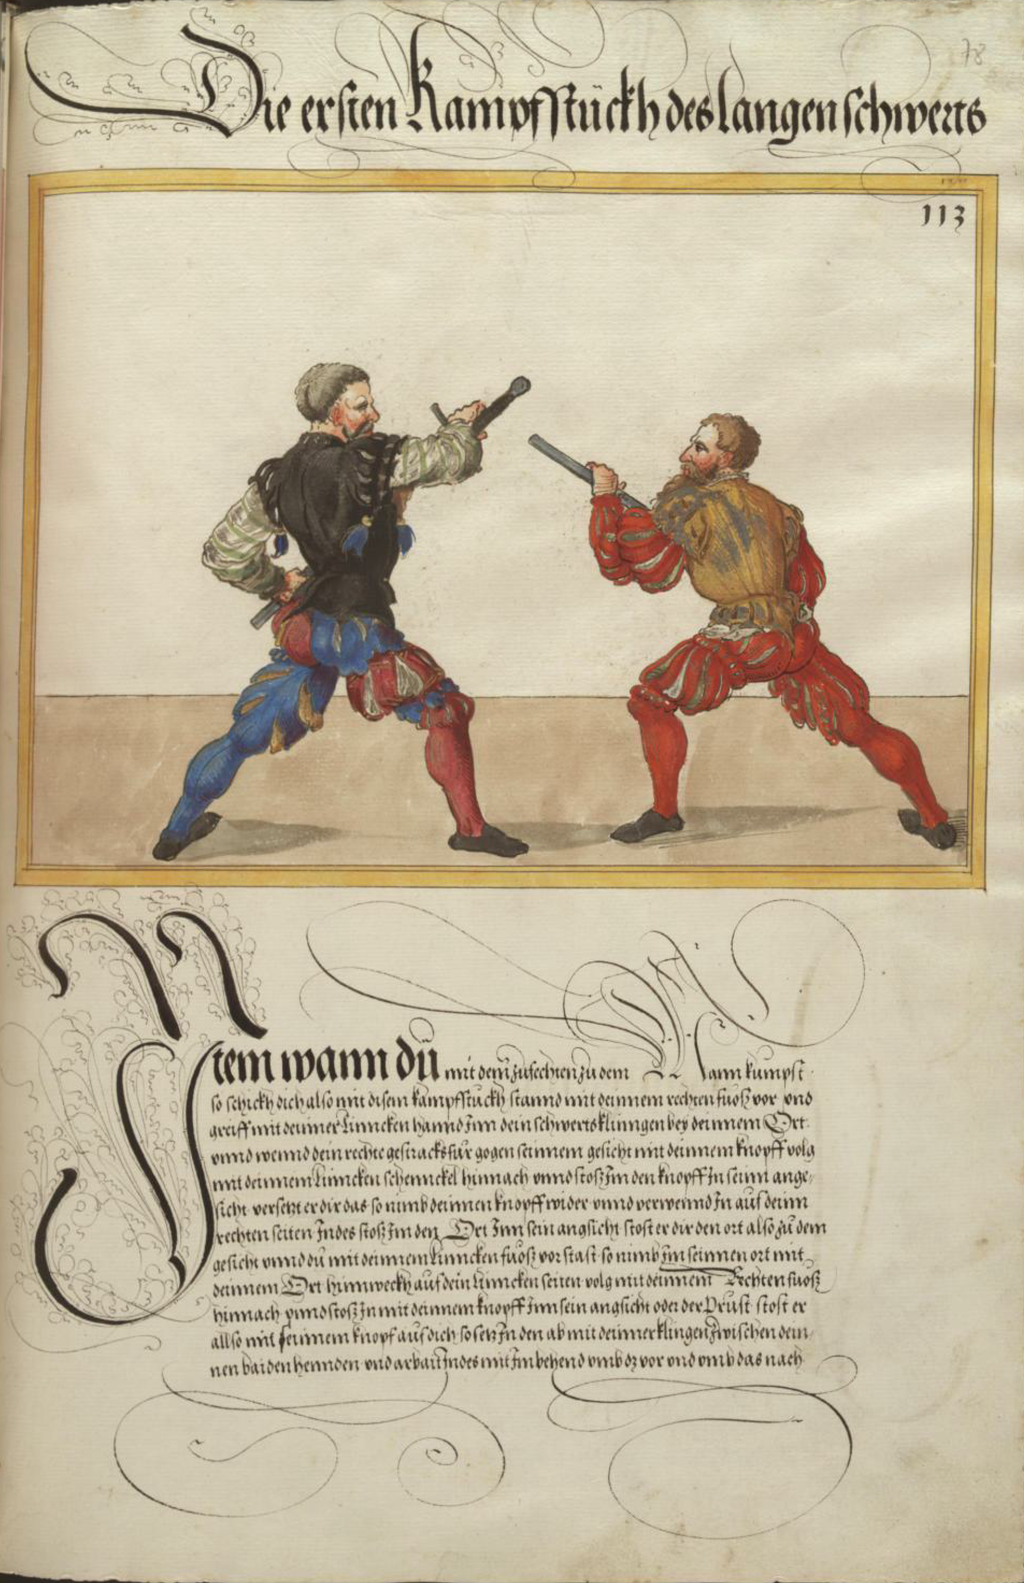 78
Die ersten Kampfstückh des langen schwerts
113
Item wann du mit dem zufechten zu dem Mann kumpst
so schickh dich also mit disem kampfstuckh stannd mit deinnem rechten fuosz vor vnd
greiff mit deinner linncken hannd Inn dein schwertsklinngen bey deinnem Ort
vnnd wennd dein rechte gestracks fur gegen seinnem gesicht mit deinnem knopff volg
mit deinnem linncken schennckel hinnach vnnd stosz Im den knopff In seinn ange,
sicht versetzt er dir das so nimb deinnen knopff wider vnnd verwennd In auf deinn
rechten seiten Indes stosz Im den Ort Inn sein angsicht stost er dir den ort also zu dem
gesicht vnnd du mit deinnem linncken fuosz vor stast so nimb Im seinnen ort mit
deinnem Ort hinnweckh auf dein linncken seiten volg mit deinnem Rechten fuosz
hinnach vnnd stosz In mit deinnem knopff Inn sein angsicht oder der Prust stost er
allso mit seinnem knopf auf dich so setz In den ab mit deinner klingen zwischen dein,
nen baiden hennden vnd arbait Indes mit Im behend vmb dz vor vnd vmb das nach